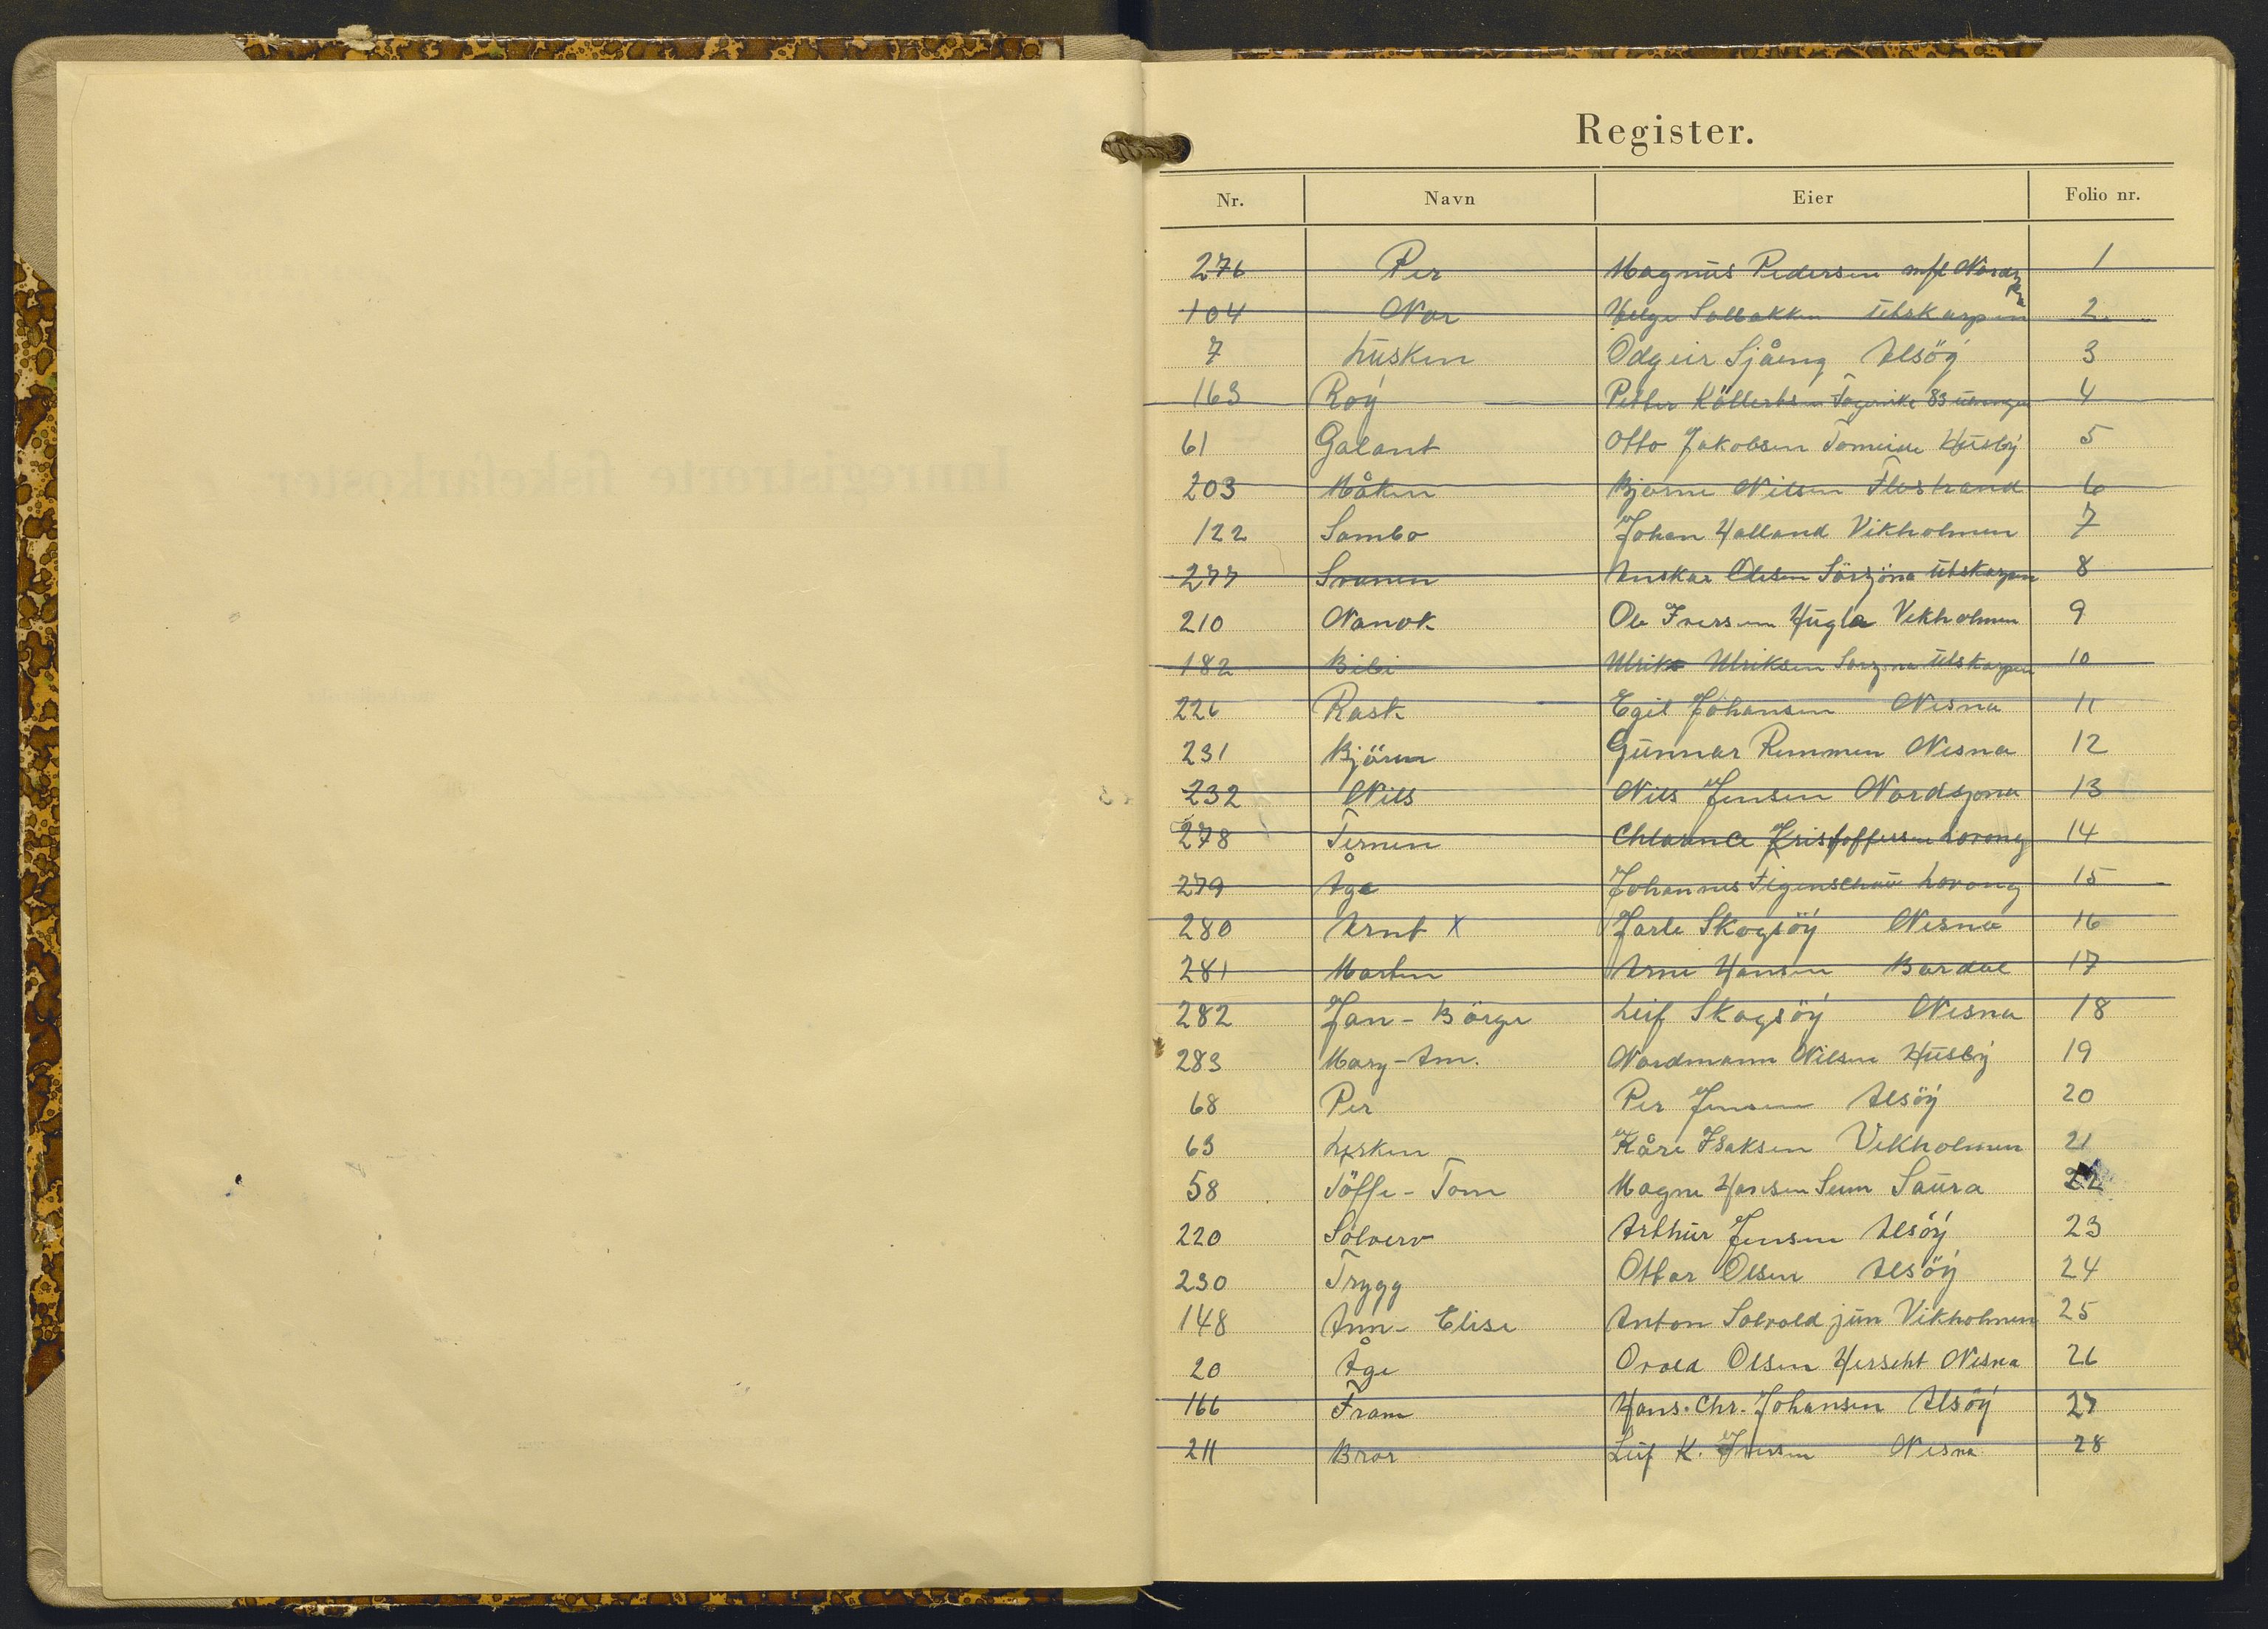 Register.
Nr. Navn Eier Folio nr.
276 Per Magnus Pedersen mfl 1
104 Nor Helge Solbakken Utskarpen 2
7 Lusken Odgeir Sjåeng Alsöy 3
163 Roy Petter 83 4
61 Galant Otto Jakobsen Husby 5
203 Måken Bjarne Nilsen Flostrand 6
122 Sambo Johan Halland Vikholmen 7
277 Svanen Anskar Olesen Sörsjona Utskarpen 8
210 Nanok Ole Iversen Hugla Vikholmen 9
182 Bibi Ulrik Ulriksen Sorsjona Utskarpen 10
226 Rask Egil Johansen Nesna 11
231 Björen Gunnar Remmen Nesna 12
232 Nils Nils Jensen Nordsjona 13
278 Ternen Kristoffersen Lovong 14
279 Åge Johannes Figenschau Lovong 15
280 Arnt X Jarle Skogsöy Nesna 16
281 Marten Arne Hansen Bardal 17
282 Jan-Börge Leif Skogsöy Nesna 18
283 Mary-Ann. Nordmann Nilsen Husby 19
68 Per Per Jensen Alsöy 20
63 Kåre Isaksen Vikholmen 21
58 Töffe-Tom Magne Hansen Saura 22
220 Sölverv Arthur Jensen Alsöy 23
230 Trygg Ottar Olsen Alsöy 24
148 Ann-Elise Anton Solvold jun Vikholmen 25
20 Åge Orved Olsen Nesna 26
166 Fram Hans. Chr. Johansen Alsöy 27
211 Bror Leif K. Iversen Nesna 28